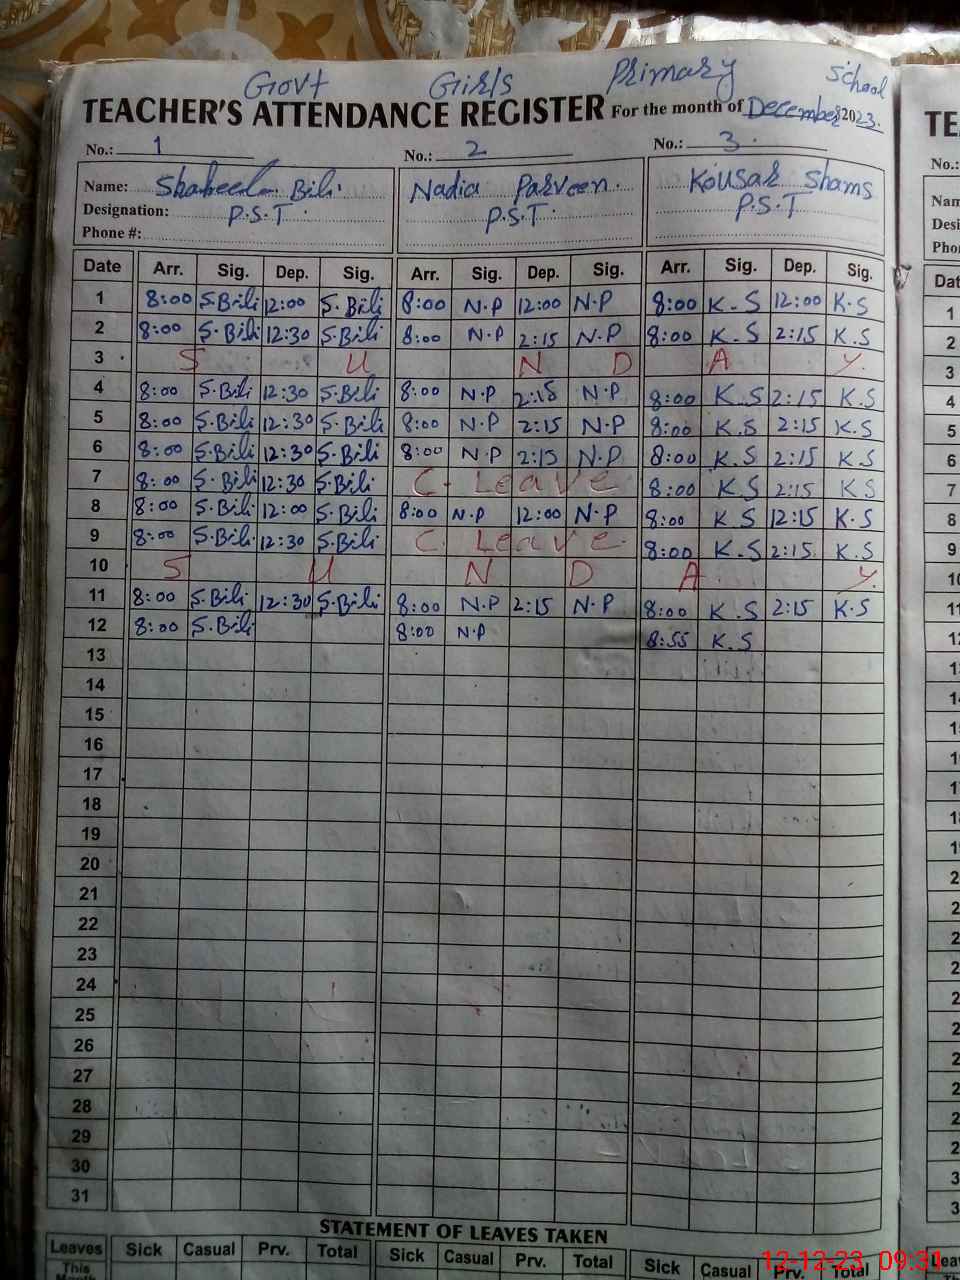 Govt Girls Primary School
TEACHER'S ATTENDANCE REGISTER For the month of December 2023.
No.: 1 No.: 2 No.: 3.
Name: Shaheela Bibi. Nadia Parveen. Kousar Shams
Designation: P.S.T. P.S.T. P.S.T
Phone #:
Date Arr. Sig. Dep. Sig. Arr. Sig. Dep. Sig. Arr. Sig. Dep. Sig.
1 8:00 S.Bibi 12:00 S.Bibi 8:00 N.P 12:00 N.P 8:00 K.S 12:00 K.S
2 8:00 S.Bibi 12:30 S.Bibi 8:00 N.P 2:15 N.P 8:00 K.S 2:15 K.S
3 S U N D A Y.
4 8:00 S.Bibi 12:30 S.Bibi 8:00 N.P 2:15 N.P 8:00 K.S 2:15 K.S
5 8:00 S.Bibi 12:30 S.Bibi 8:00 N.P 2:15 N.P 8:00 K.S 2:15 K.S
6 8:00 S.Bibi 12:30 S.Bibi 8:00 N.P 2:15 N.P 8:00 K.S 2:15 K.S
7 8:00 S.Bibi 12:30 S.Bibi C. Leave 8:00 K.S 2:15 K S
8 8:00 S.Bibi 12:00 S.Bibi 8:00 N.P 12:00 N.P 8:00 K S 12:15 K.S
9 8:00 S.Bibi 12:30 S.Bibi C. Leave. 8:00 K.S 2:15 K.S
10 S U N D A Y.
11 8:00 S.Bibi 12:30 S.Bibi 8:00 N.P 2:15 N.P 8:00 K S 2:15 K.S
12 8:00 S.Bibi 8:00 N.P 8:55 K.S
13
14
15
16
17
18
19
20
21
22
23
24
25
26
27
28
29
30
31
STATEMENT OF LEAVES TAKEN
Leaves Sick Casual Prv. Total Sick Casual Prv. Total Sick Casual Prv. Total
This
12-12-23 09:31